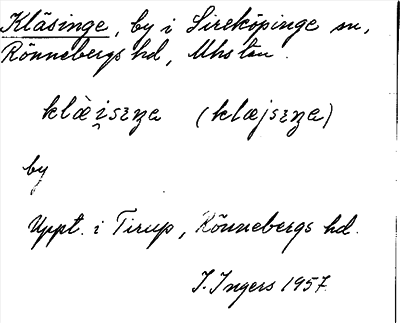 Kläsinge, by i Sireköpinge sn,
Rönnebergs hd, Mhs län.
klæ̀i̯sɪŋa (klæjsɪŋa)
by
Uppt. i Tirup, Rönnebergs hd.
I. Ingers 1957.